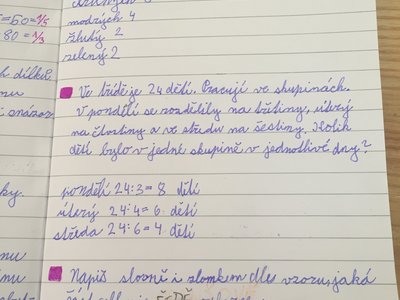 modrých 4
žlutý 2
zelený 2
Ve třídě je 24 dětí. Pracují ve skupinách.
V pondělí se rozdělily na třetiny, úterý
na čtvrtiny a ve středu na šestiny. Kolik
dětí bylo v jedné skupině v jednotlivé dny?
pondělí 24:3=8 dětí
úterý 24:4=6 dětí
středa 24:6=4 dětí
Napiš slovně i zlomkem dle vzoru, jaká
5=60=1/5
80=1/3
h dílků